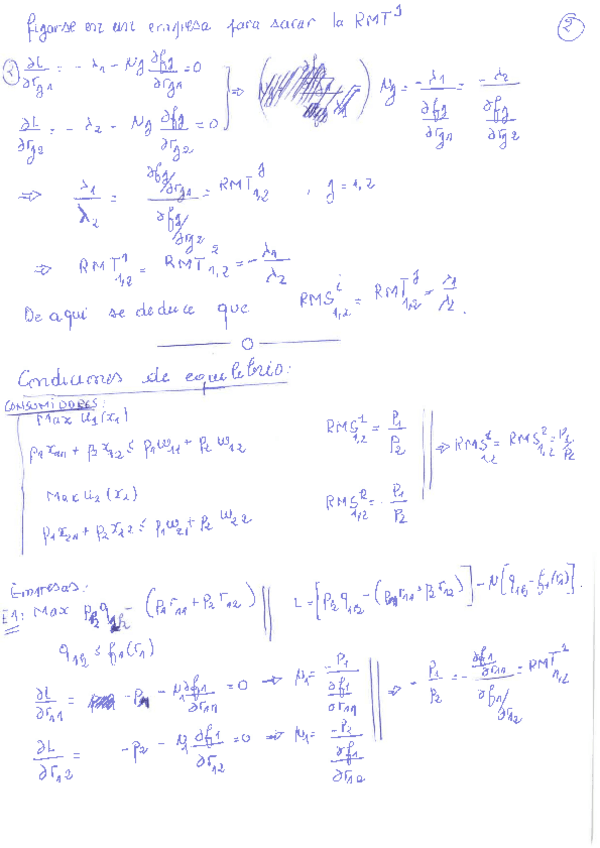 figarse en un empresa para sacar la RMT^J
②
② ∂L/∂r_g1 = - λ_1 - N_g ∂f_g/∂r_g1 = 0
∂L/∂r_g2 = - λ_2 - N_g ∂f_g/∂r_g2 = 0 } ⇒ N_g = -λ_1/(∂f_g/∂r_g1) = -λ_2/(∂f_g/∂r_g2)
⇒ λ_1/λ_2 = (∂f_g/∂r_g1)/(∂f_g/∂r_g2) = RMT^J_1,2 , J = 1,2
⇒ RMT^1_1,2 = RMT^2_1,2 = - λ_1/λ_2
De aqui se deduce que RMS^i_1,2 = RMT^J_1,2 = λ_1/λ_2 .
Condiciones de equilibrio:
CONSUMIDORES:
Max u_1(x_1)
p_1 x_11 + p_2 x_12 ≤ p_1 w_11 + p_2 w_12
RMS^1_1,2 = P_1/P_2
Max u_2(x_2)
p_1 x_21 + p_2 x_22 ≤ p_1 w_21 + p_2 w_22
RMS^2_1,2 = P_1/P_2
⇒ RMS^1_1,2 = RMS^2_1,2 = P_1/P_2
Empresas:
E1: Max q_1 - (p_1 r_11 + p_2 r_12) || L = [ - (r_11 + r_12)] - N[ - f_1(r_1)] .
≤ f_1(r_1)
∂L/∂r_11 = -P_1 - N_1 ∂f_1/∂r_11 = 0 → N_1 = -P_1/(∂f_1/∂r_11)
∂L/∂r_12 = -P_2 - N_1 ∂f_1/∂r_12 = 0 ⇒ N_1 = -P_2/(∂f_1/∂r_12)
⇒ - P_1/P_2 = - (∂f_1/∂r_11)/(∂f_1/∂r_12) = RMT_1,2